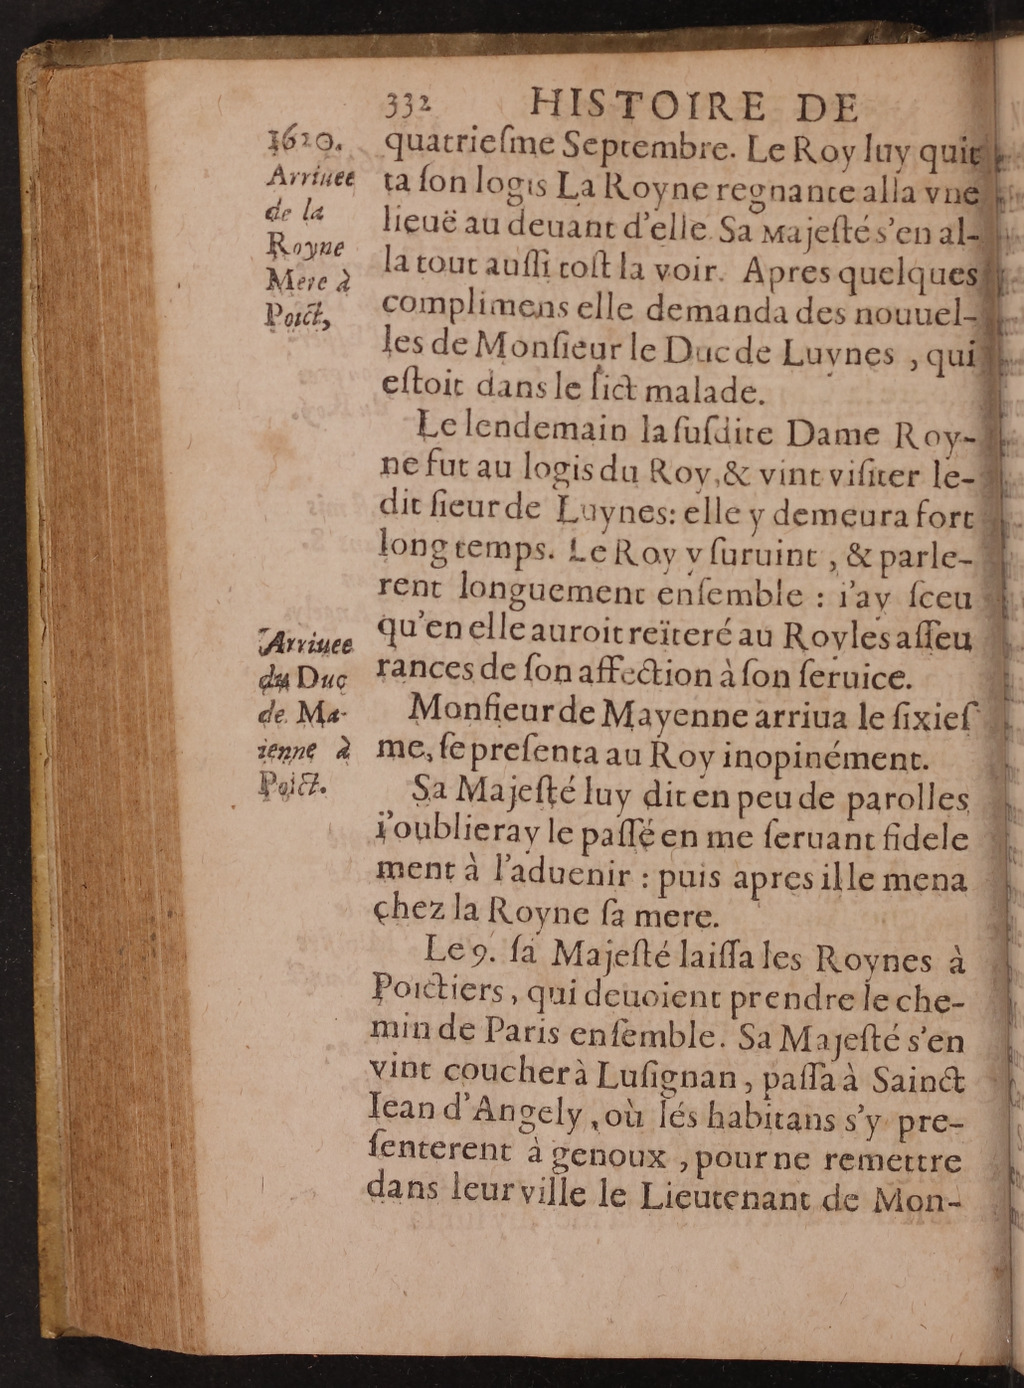 332 HISTOIRE DE
1620.
Arriuee
de la
Royne
Mere à
Poict,
quatrieſme Septembre. Le Roy luy quit
ta ſon logis La Royne regnante alla vne
lieuë au deuant d'elle. Sa Majeſté s'en al-
la tout auſſi toſt la voir. Apres quelques
complimens elle demanda des nouuel-
les de Monſieur le Duc de Luynes , qui
eſtoit dans le lict malade.
Le lendemain la ſuſdite Dame Roy-
ne fut au logis du Roy, & vint viſiter le-
dit ſieur de Luynes: elle y demeura fort
long temps. Le Roy y ſuruint , & parle-
rent longuement enſemble : i'ay ſceu
qu'en elle auroit reïteré au Roy les aſſeu
rances de ſon affection à ſon ſeruice.
Arriuee
du Duc
de Ma-
ienne à
Poict.
Monſieur de Mayenne arriua le ſixieſ
me, ſe preſenta au Roy inopinément.
Sa Majeſté luy dit en peu de parolles
i'oublieray le paſſé en me ſeruant fidele
ment à l'aduenir : puis apres il le mena
chez la Royne ſa mere.
Le 9. ſa Majeſté laiſſa les Roynes à
Poictiers , qui deuoient prendre le che-
min de Paris enſemble. Sa Majeſté s'en
vint coucher à Luſignan , paſſa à Sainct
Iean d'Angely , où lés habitans s'y pre-
ſenterent à genoux , pour ne remettre
dans leur ville le Lieutenant de Mon-